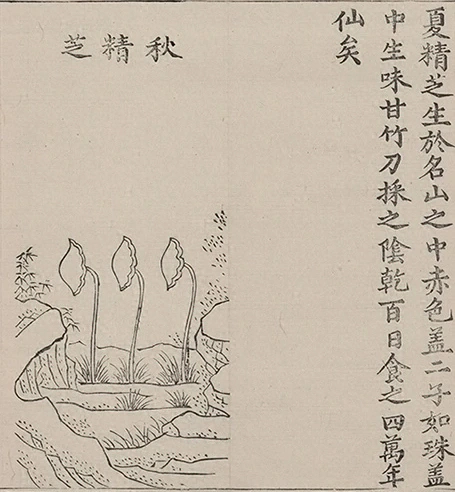 夏精芝生於名山之中赤色盖二子如珠盖
中生味甘竹刀採之陰乾百日食之四萬年
仙矣
秋精芝